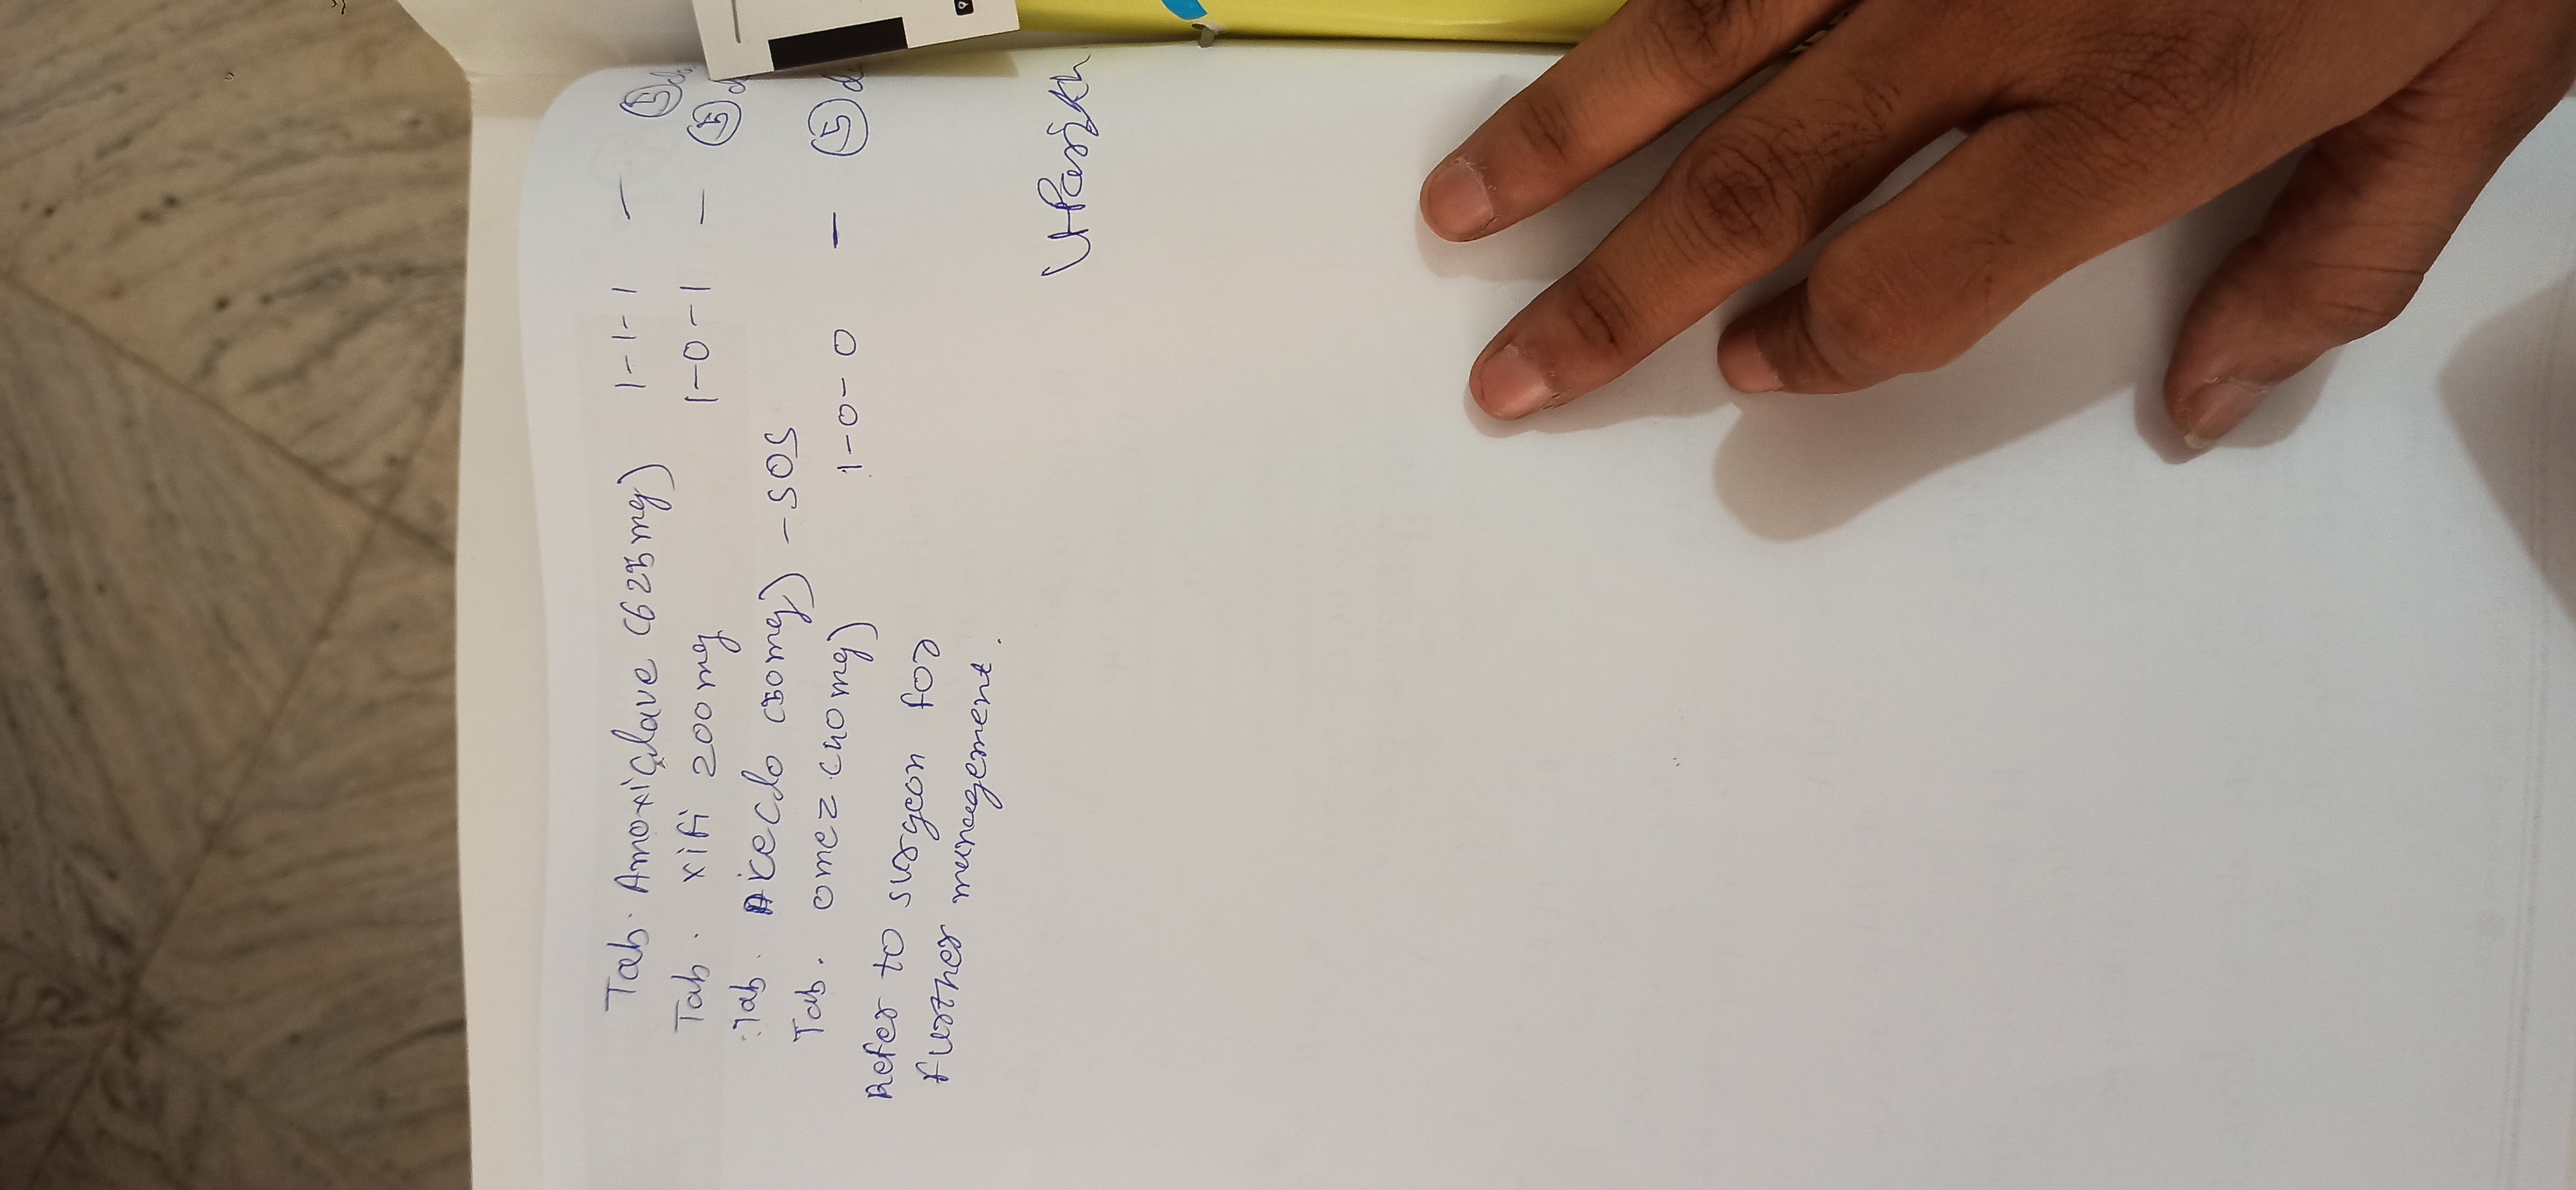 Tab. Amoxiclave (625mg) 1-1-1 - 5 d
Tab. xifi 200mg 1-0-1 - 5 d
Tab. Aceclo (50mg) - SOS
Tab. omez (40mg) 1-0-0 - 5 d
Refer to surgeon for
further management.